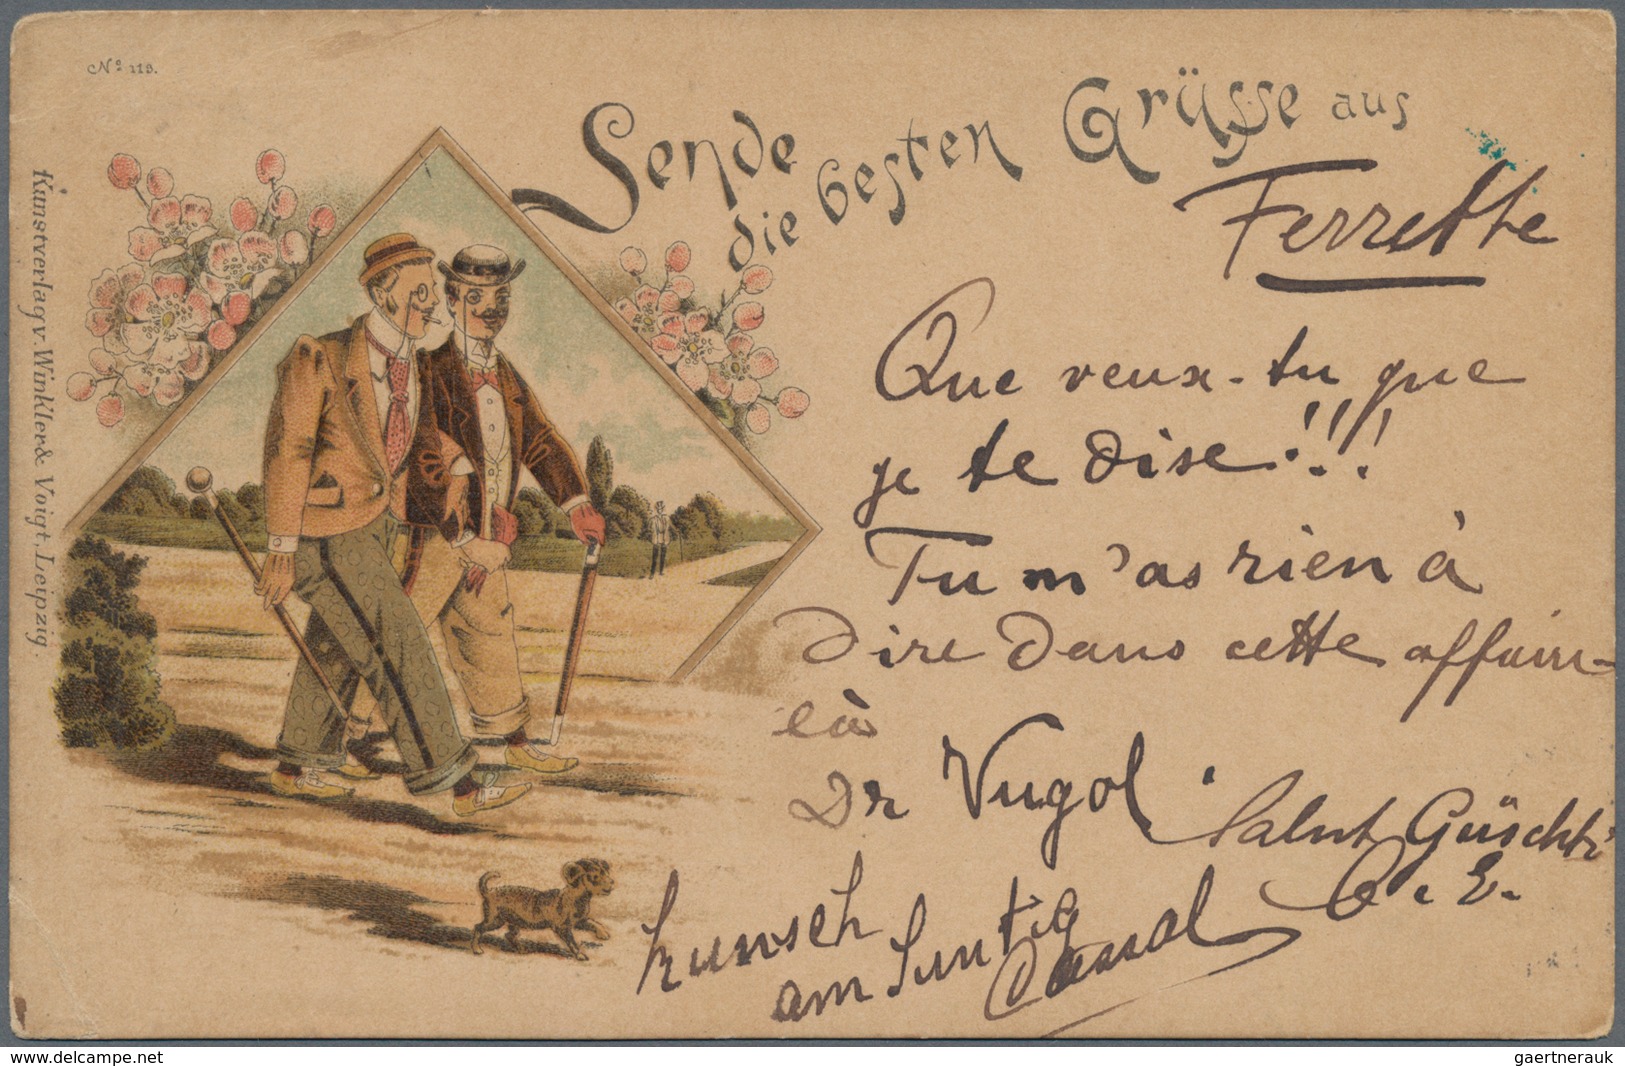 No 113.
Kunstverlag v. Winkler & Voigt, Leipzig.
Sende
die besten Grüsse aus
Ferrette
Que veux-tu que
je te dise!!!
Tu m'as rien à
dire dans cette affair-
là
Dr Vugol.
Salut Güschti
kunsch
am Suntig
E.
delcampe.net
gaertnerauk